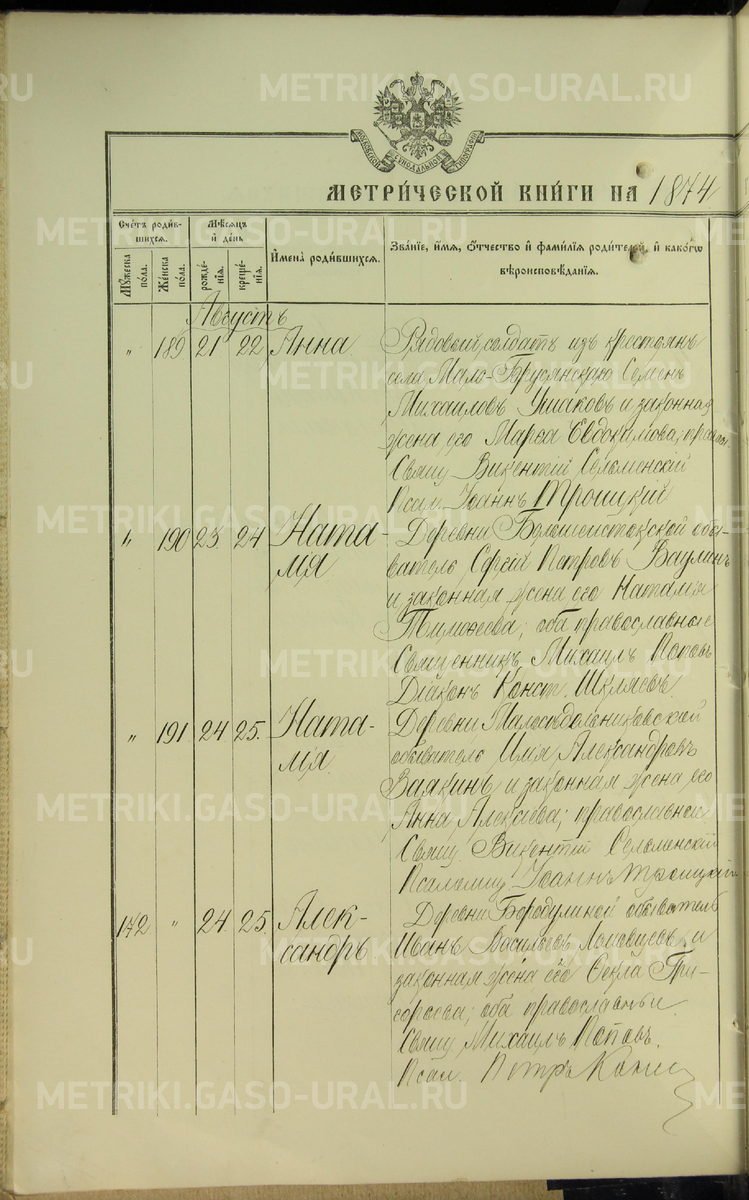 METRIKI.GASO-URAL.RU
МОСКОВСКОЙ СѴНОДАЛЬНОЙ ТИПОГРАФІИ
МЕТРИ́ЧЕСКОЙ КНИ́ГИ НА 1874
Сче́тъ роди́вшихся.
Мꙋ́жеска по́ла.
Же́нска по́ла.
Мѣ́сяцъ и҆ де́нь
рожде́нїѧ.
креще́нїѧ.
И҆мена̀ роди́вшихсѧ.
Зва́нїе, и҆́мѧ, ѻ҆́тчество и҆ фами́лїѧ роди́телей, и҆ како́гѡ
вѣроисповѣ́данїѧ.
Августъ
" 189 21 22 Анна
Рядовой солдатъ изъ крестьянъ
села Мало-Брусянскаго Семенъ
Михаиловъ Ушаковъ и законная
жена его Марѳа Евдокимова; прав
Свящ. Викентій Селоменскій
Псал. Іоаннъ Троицкій
" 190 23 24 Ната-
лія
Деревни Большеистокской обы-
ватель Сергій Петровъ Ваулинъ
и законная жена его Наталья
Тимоѳеева; оба православные
Священникъ Михаилъ Поповъ
Діаконъ Конст. Шкляевъ
" 191 24 25. Ната-
лія
Деревни
обыватель Илія Александровъ
Ваякинъ и законная жена его
Анна Алексіева; православные
Свящ. Викентій Селоменскій
Псаломщ. Іоаннъ Троицкій
172 " 24 25. Алек-
сандръ
Деревни Бородулиной обыватель
Иванъ Васильевъ и
законная жена его Ѳекла Гри-
горьева; оба православныи
Свящ. Михаилъ Поповъ.
Псал. Петръ